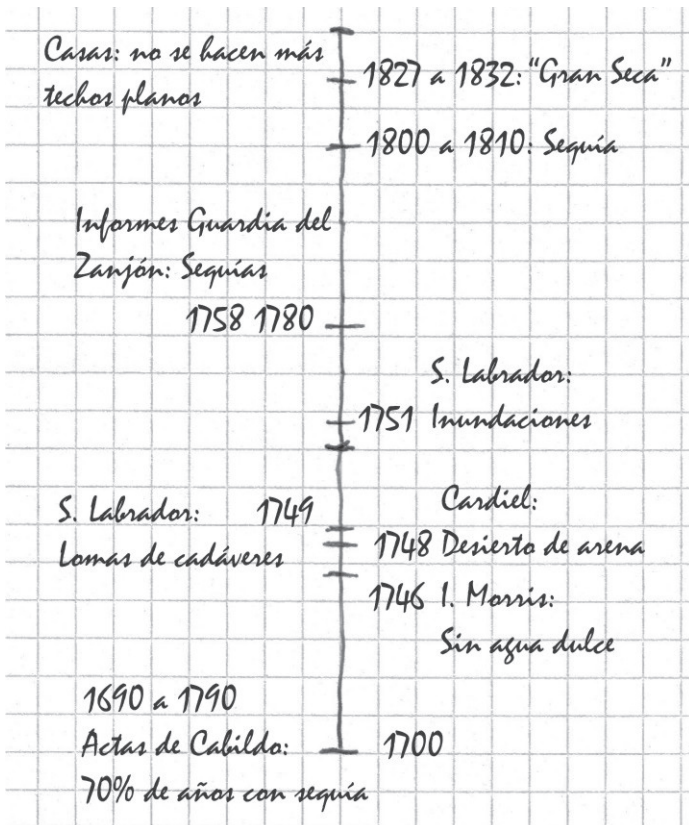 Casas: no se hacen más
techos planos
1827 a 1832: "Gran Seca"
1800 a 1810: Sequía
Informes Guardia del
Zanjón: Sequías
1758 1780
S. Labrador:
1751 Inundaciones
S. Labrador: 1749
Lomas de cadáveres
Cardiel:
1748 Desierto de arena
1746 I. Morris:
Sin agua dulce
1690 a 1790
Actas de Cabildo:
70% de años con sequía
1700